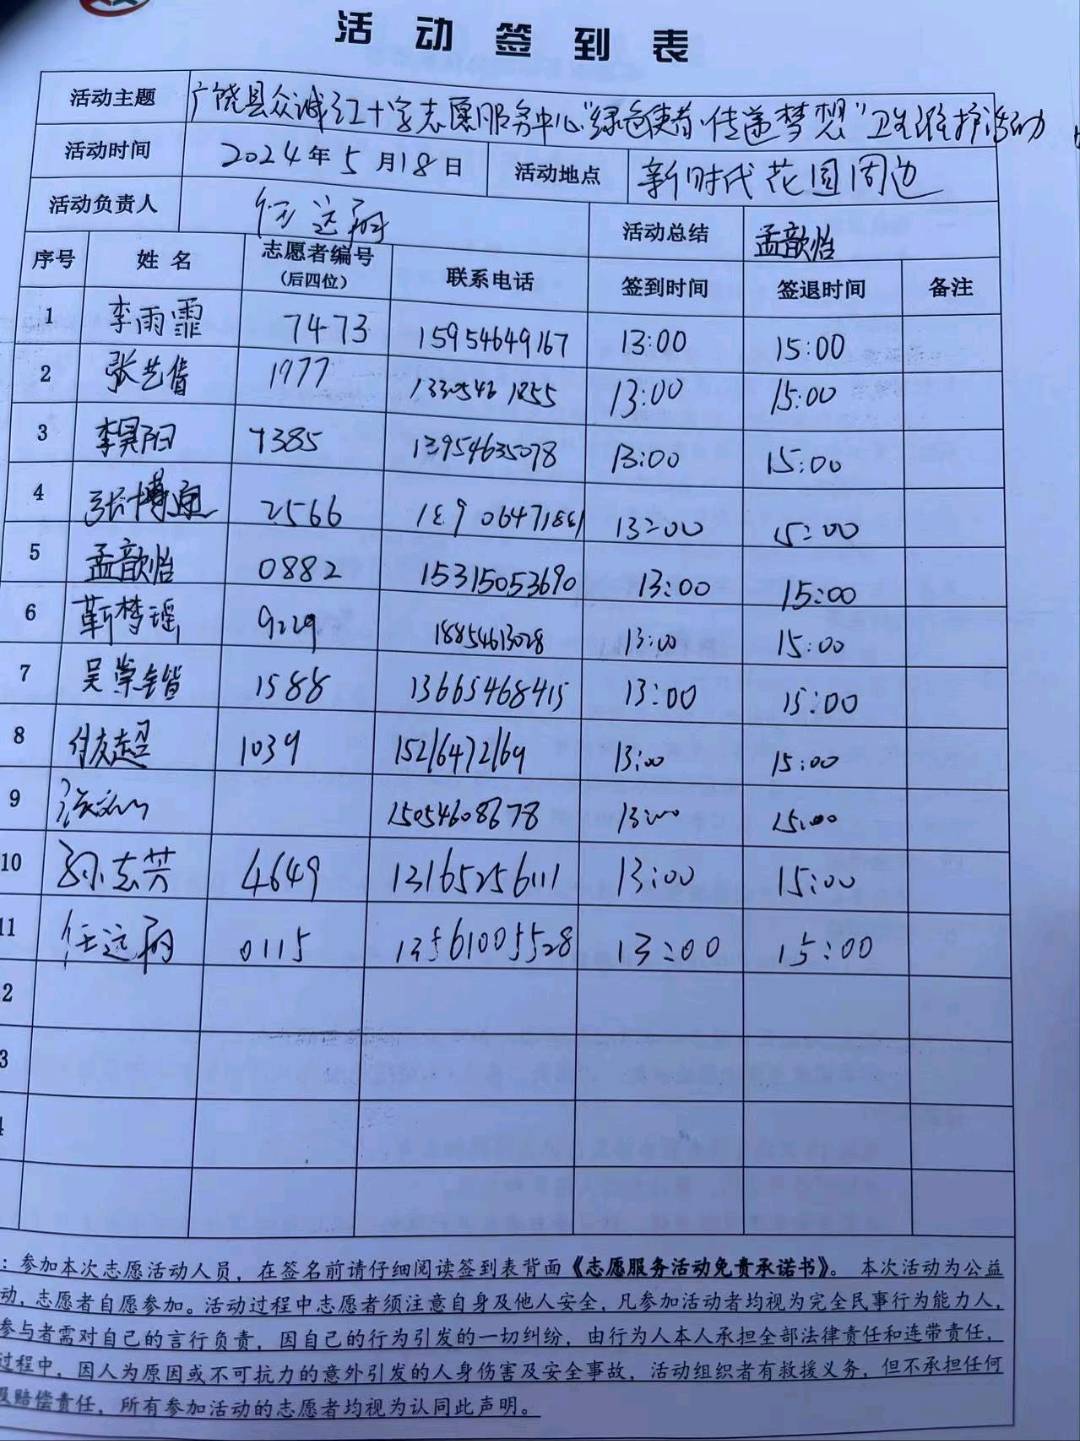 活动签到表
活动主题 广饶县众诚红十字志愿服务中心“绿色使者·传递梦想”卫生维护活动
活动时间 2024年5月18日 活动地点 新时代花园周边
活动负责人 任远丽 活动总结 孟歆怡
序号 姓名 志愿者编号（后四位） 联系电话 签到时间 签退时间 备注
1 李雨霏 7473 15954649167 13:00 15:00
2 张艺 1977 13:00 15:00
3 李昊阳 7385 13954635078 13:00 15:00
4 张博 2566 13:00 15:00
5 孟歆怡 0882 15315053690 13:00 15:00
6 靳梦瑶 9229 18854613028 13:00 15:00
7 吴崇锴 1588 13665468415 13:00 15:00
8 超 1039 15216472169 13:00 15:00
9 15054608678 13:00 15:00
10 孙志芳 4649 13165256111 13:00 15:00
11 任远丽 0115 13561005528 13:00 15:00
2
3
：参加本次志愿活动人员，在签名前请仔细阅读签到表背面《志愿服务活动免责承诺书》。本次活动为公益
动，志愿者自愿参加。活动过程中志愿者须注意自身及他人安全，凡参加活动者均视为完全民事行为能力人，
参与者需对自己的言行负责，因自己的行为引发的一切纠纷，由行为人本人承担全部法律责任和连带责任，
过程中，因人为原因或不可抗力的意外引发的人身伤害及安全事故，活动组织者有救援义务，但不承担任何
及赔偿责任，所有参加活动的志愿者均视为认同此声明。